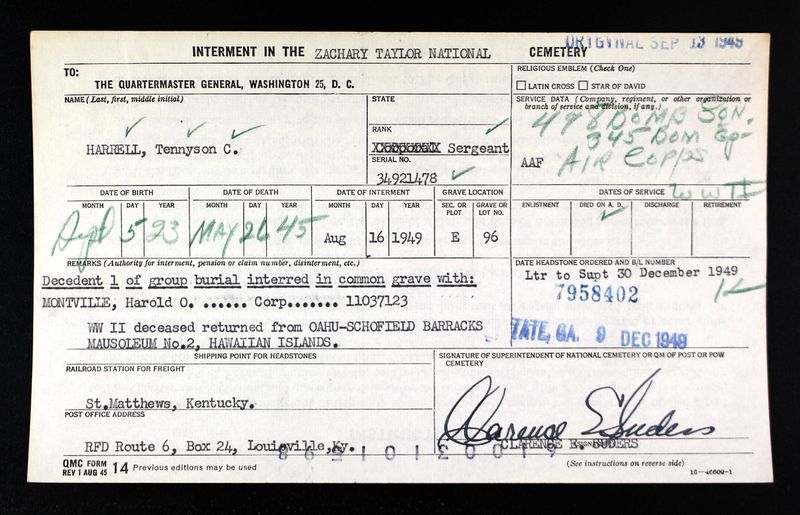 ORIGINAL SEP 13 1949
INTERMENT IN THE ZACHARY TAYLOR NATIONAL CEMETERY
TO:
THE QUARTERMASTER GENERAL, WASHINGTON 25, D. C.
RELIGIOUS EMBLEM (Check One)
LATIN CROSS STAR OF DAVID
NAME (Last, first, middle initial)
HARRELL, Tennyson C.
STATE
RANK
Corporal Sergeant
SERIAL NO.
34921478
SERVICE DATA (Company, regiment, or other organization or branch of service and division, if any.)
498 BOMB SQN.
345 BOM Gp
AAF AIR CORPS
DATE OF BIRTH
MONTH DAY YEAR
Sept 5 23
DATE OF DEATH
MONTH DAY YEAR
MAY 26 45
DATE OF INTERMENT
MONTH DAY YEAR
Aug 16 1949
GRAVE LOCATION
SEC. OR PLOT GRAVE OR LOT NO.
E 96
DATES OF SERVICE WW II
ENLISTMENT DIED ON A. D. DISCHARGE RETIREMENT
REMARKS (Authority for interment, pension or claim number, disinterment, etc.)
Decedent 1 of group burial interred in common grave with:
MONTVILLE, Harold O. ...... Corp....... 11037123
WW II deceased returned from OAHU-SCHOFIELD BARRACKS
MAUSOLEUM No.2, HAWAIIAN ISLANDS.
DATE HEADSTONE ORDERED AND B/L NUMBER
Ltr to Supt 30 December 1949
7958402
TATE, GA. 9 DEC 1949
SHIPPING POINT FOR HEADSTONES
RAILROAD STATION FOR FREIGHT
St.Matthews, Kentucky.
POST OFFICE ADDRESS
RFD Route 6, Box 24, Louisville,Ky.
SIGNATURE OF SUPERINTENDENT OF NATIONAL CEMETERY OR QM OF POST OR POW CEMETERY
Clarence E Guders
CLARENCE E. GUDERS
QMC FORM
REV 1 AUG 45 14 Previous editions may be used
(See instructions on reverse side)
16—46609-1